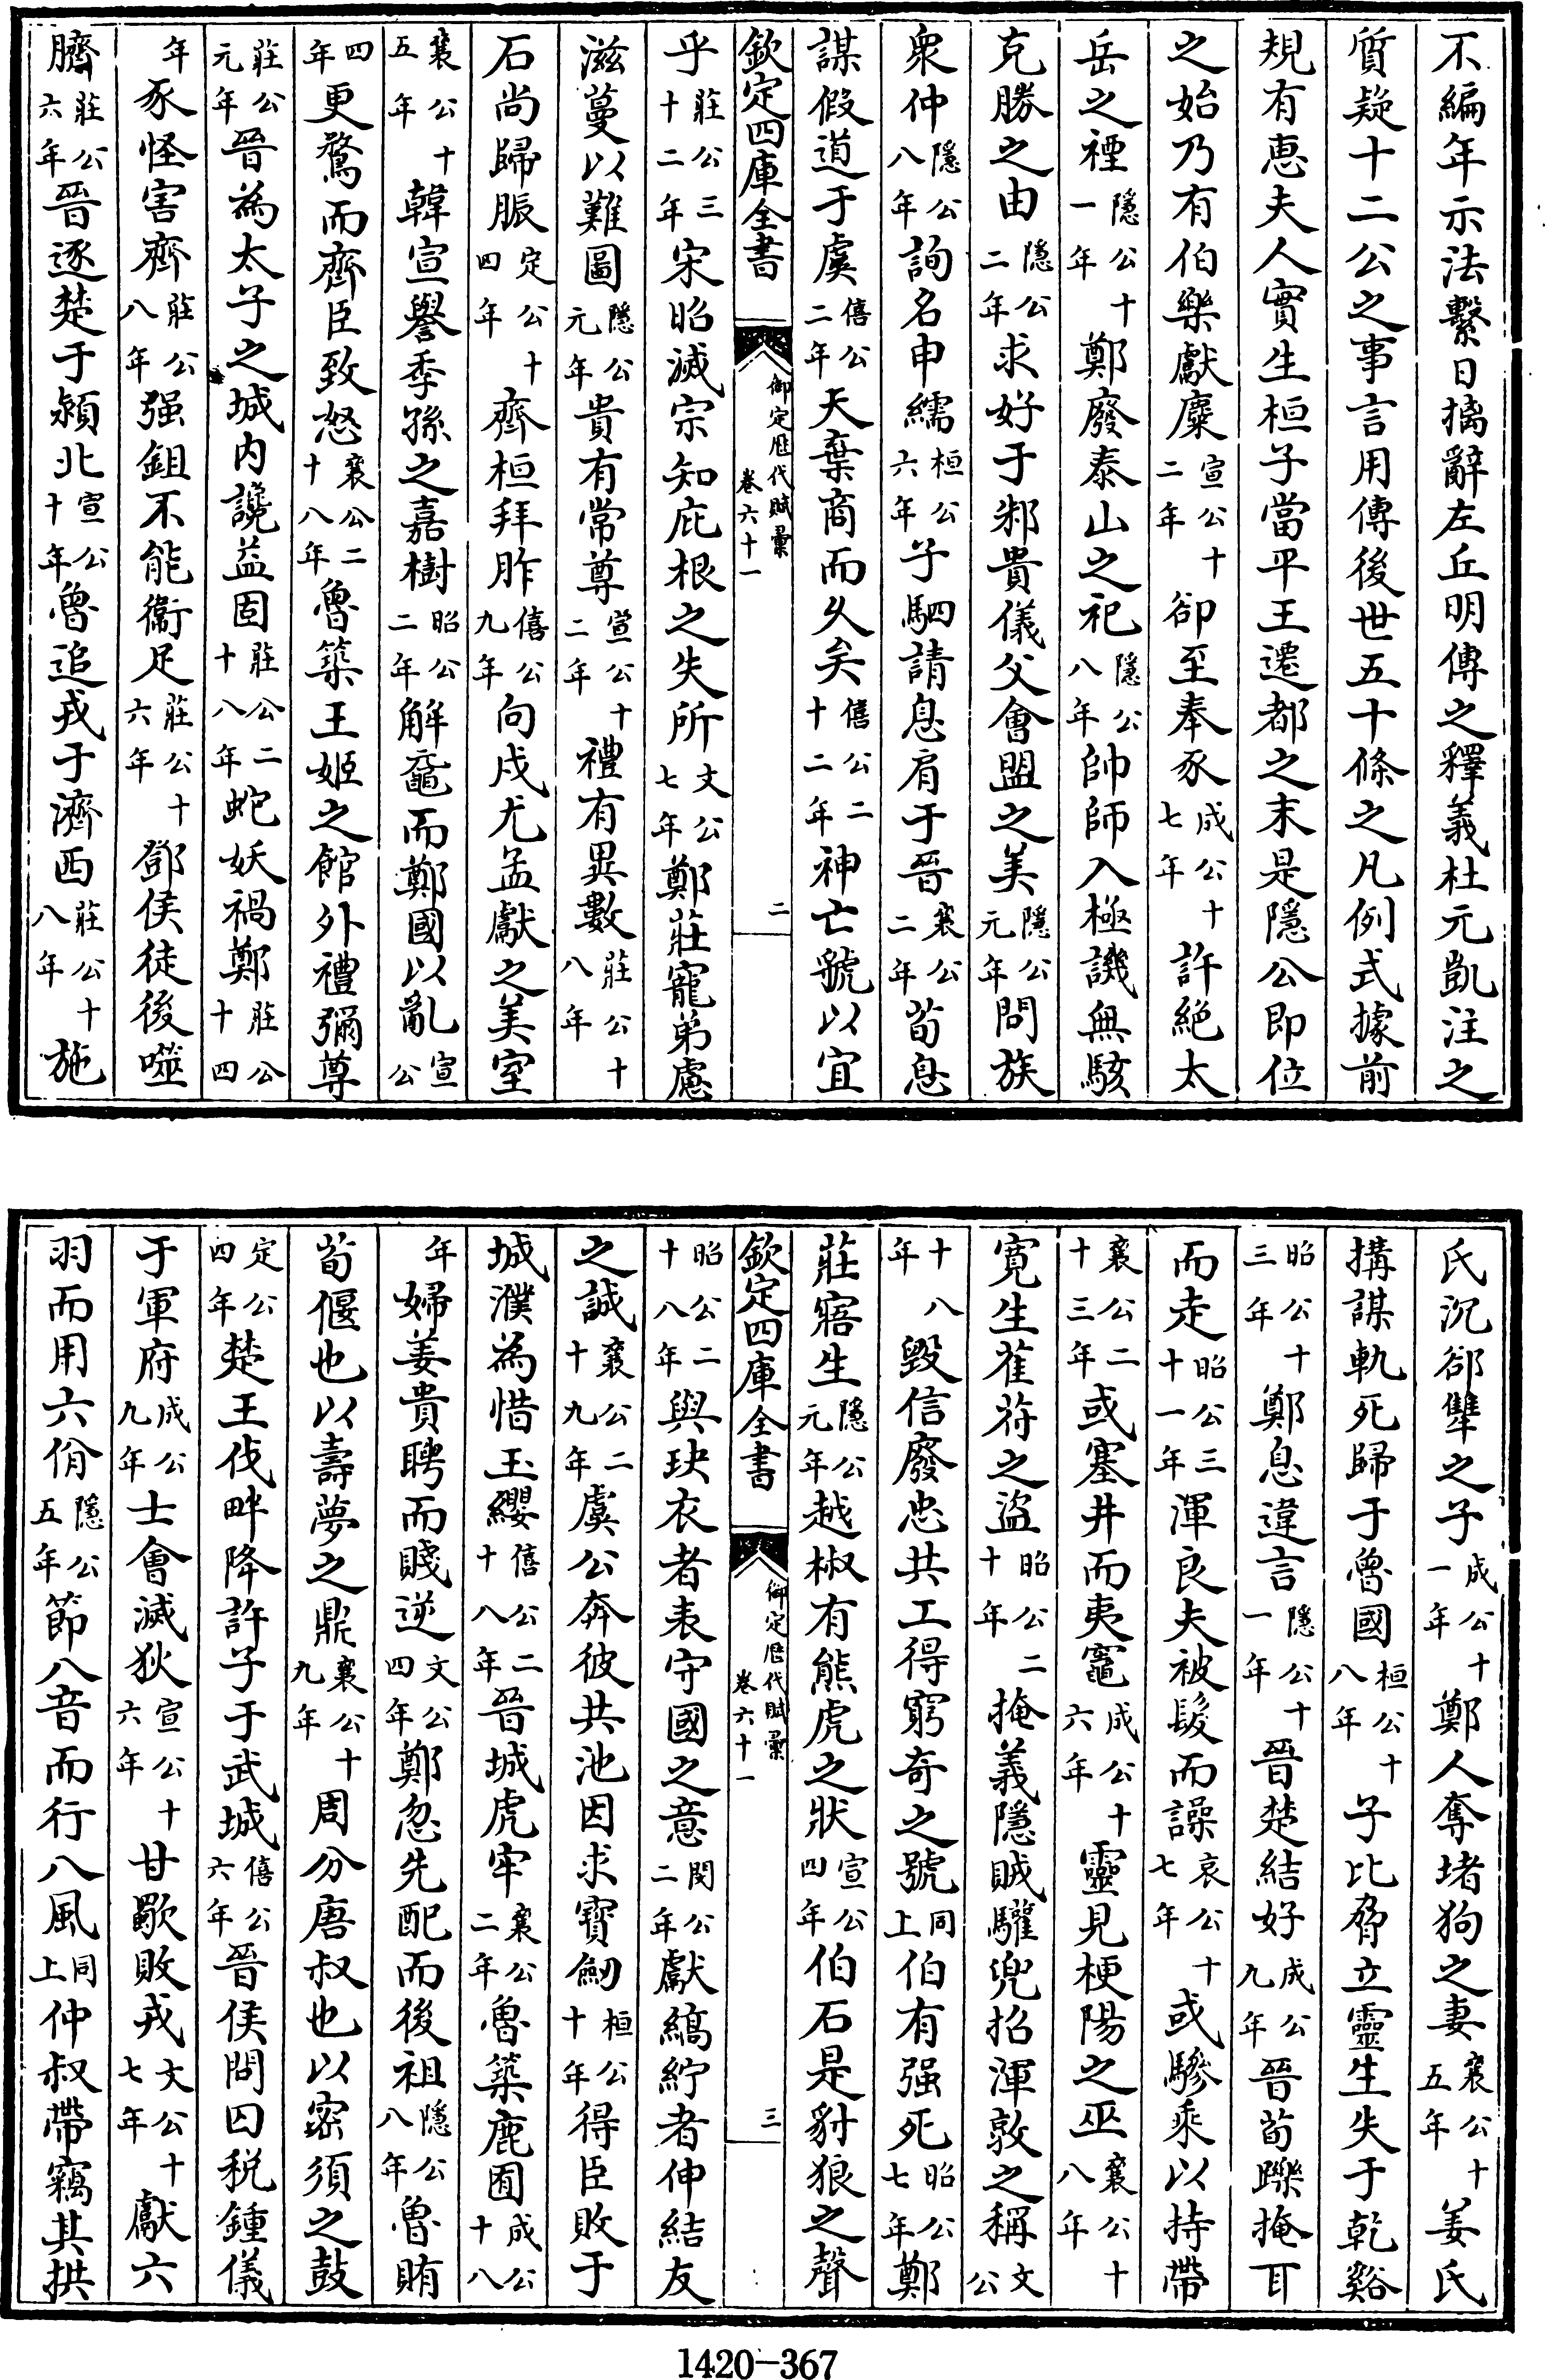 不編年示法繫日摛辭左丘明傳之釋義杜元凱注之
質疑十二公之事言用傳後世五十條之凡例式據前
規有惠夫人實生桓子當平王遷都之末是隱公即位
之始乃有伯樂獻麋宣公十二年卻至奉豕成公十七年許絶太
岳之禋隱公十一年鄭廢泰山之祀隱公八年帥師入極譏無駭
克勝之由隱公二年求好于邾貴儀父會盟之美隱公元年問族
衆仲隱公八年詢名申繻桓公六年子駟請息肩于晉襄公二年荀息
謀假道于虞僖公二年天棄商而乆矣僖公二十二年神亡虢以宜
欽定四庫全書
御定歴代賦彙
卷六十一
二
乎莊公三十二年宋昭滅宗知庇根之失所文公七年鄭莊寵弟慮
滋蔓以難圖隱公元年貴有常尊宣公十二年禮有異數莊公十八年
石尚歸脤定公十四年齊桓拜胙僖公九年向戍尤孟獻之美室
襄公十五年韓宣譽季孫之嘉樹昭公二年解黿而鄭國以亂宣公
四年更鶩而齊臣致怒襄公二十八年魯築王姬之館外禮彌尊
莊公元年晉為太子之城内讒益固莊公二十八年蛇妖禍鄭莊公十四
年豕怪害齊莊公八年强鉏不能衞足莊公十六年鄧侯徒後噬
臍莊公六年晉逐楚于潁北宣公十年魯追戎于濟西莊公十八年施
氏沉郤犨之子成公十一年鄭人奪堵狗之妻襄公十五年姜氏
搆謀軌死歸于魯國桓公十八年子比脅立靈生失于乾谿
昭公十三年鄭息違言隱公十一年晉楚結好成公九年晉荀躒掩耳
而走昭公三十一年渾良夫被髮而譟哀公十七年或驂乘以持帶
襄公二十三年或塞井而夷竈成公十六年靈見梗陽之巫襄公十八年
寛生萑苻之盜昭公二十年掩義隱賊驩兜招渾敦之稱文公
十八年毁信廢忠共工得窮奇之號同上伯有强死昭公七年鄭
莊寤生隱公元年越椒有熊虎之狀宣公四年伯石是豺狼之聲
欽定四庫全書
御定歴代賦彙
卷六十一
三
昭公二十八年與玦衣者表守國之意閔公二年獻縞紵者伸結友
之誠襄公二十九年虞公奔彼共池因求寶劒桓公十年得臣敗于
城濮為惜玉纓僖公二十八年晉城虎牢襄公二年魯築鹿囿成公十八
年婦姜貴聘而賤逆文公四年鄭忽先配而後祖隱公八年魯賄
荀偃也以壽夢之鼎襄公十九年周分唐叔也以密須之鼓
定公四年楚王伐畔降許子于武城僖公六年晉侯問囚税鍾儀
于軍府成公九年士會滅狄宣公十六年甘歜敗戎文公十七年獻六
羽而用六佾隱公五年節八音而行八風同上仲叔帶竊其拱
1420-367